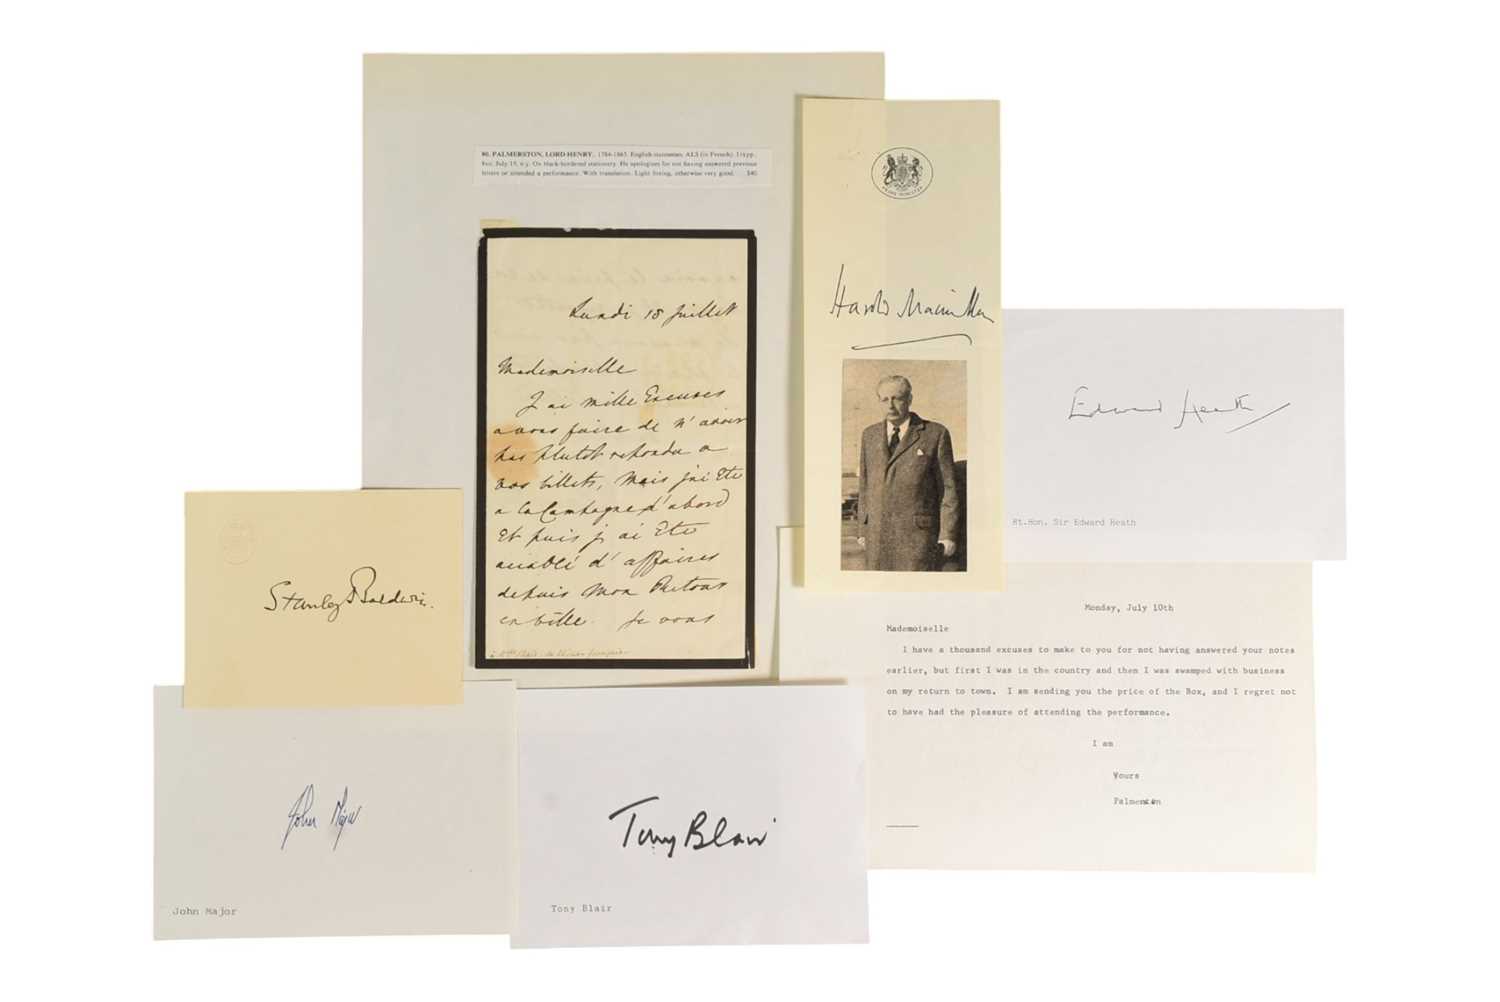 80. PALMERSTON, LORD HENRY. 1784-1865. English statesman. ALS (in French). 1½pp.
8vo, July 15, n.y. On black-bordered stationery. He apologizes for not having answered previous
letters or attended a performance. With translation. Light foxing, otherwise very good. $40
Lundi 18 Juillet
Mademoiselle
J'ai mille Excuses
a vous faire de n'avoir
pas plutot repondu a
vos billets, mais j'ai Ete
a la Campagne d'abord
Et puis j'ai Ete
accablé d'affaires
depuis mon Retour
en ville. Je vous
PRIME MINISTER
Harold Macmillan
Edward Heath
Rt.Hon. Sir Edward Heath
Stanley Baldwin.
Monday, July 10th
Mademoiselle
I have a thousand excuses to make to you for not having answered your notes
earlier, but first I was in the country and then I was swamped with business
on my return to town. I am sending you the price of the Box, and I regret not
to have had the pleasure of attending the performance.
I am
Yours
Palmerston
John Major
John Major
Tony Blair
Tony Blair